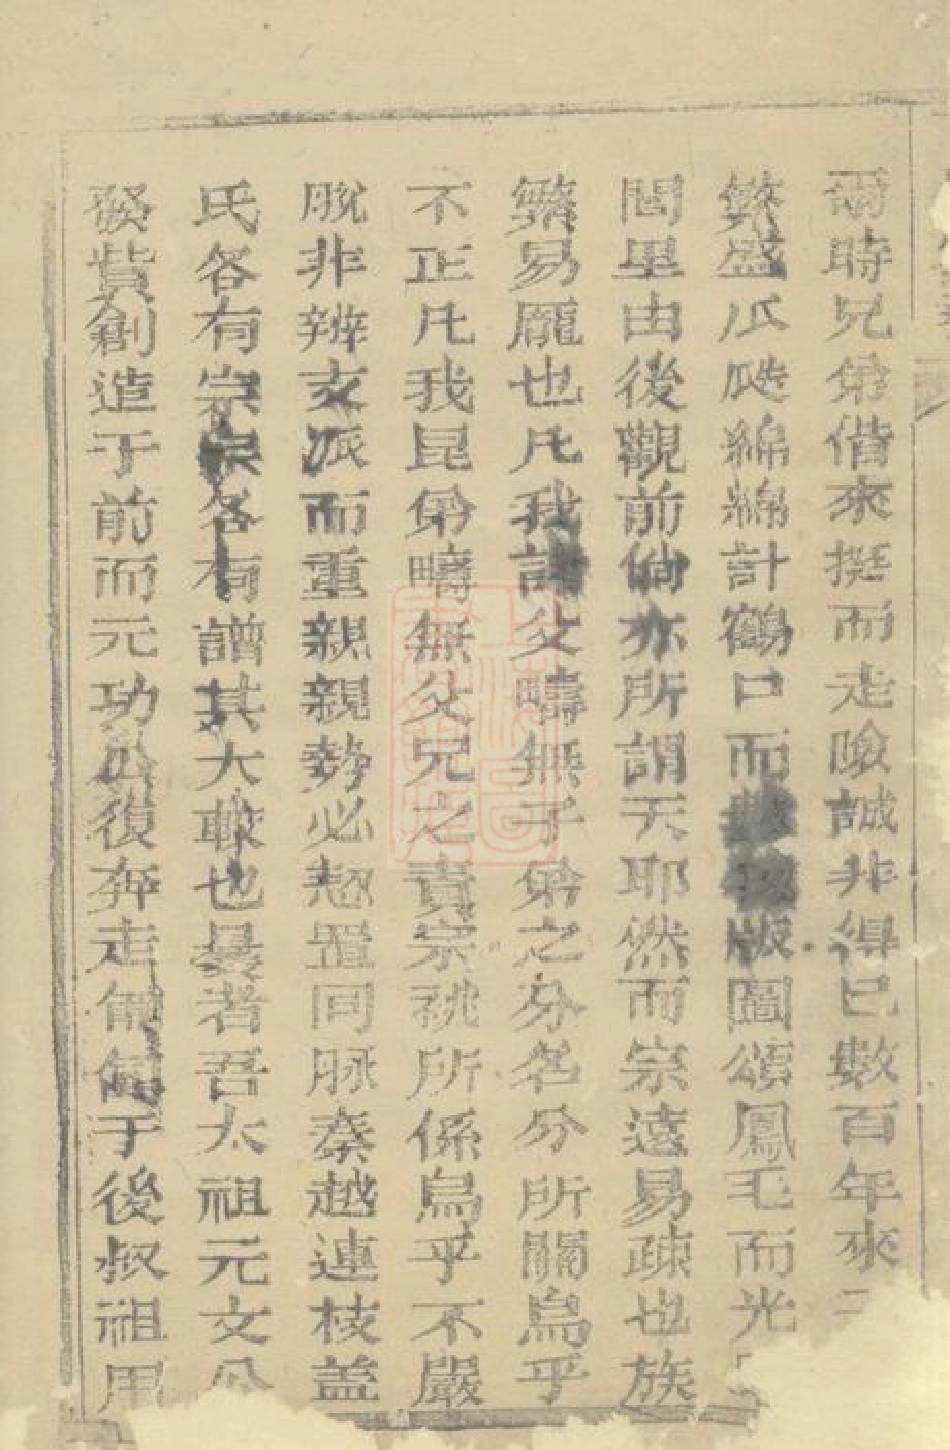 爾時兄弟偕來挺而走險誠非得已數百年來
繁盛瓜瓞綿綿計鶴口而數版圖頌鳳毛而光
閭里由後觀前倘亦所謂天耶然而宗遠易疎也族
繁易龐也凡我諸父疇無子弟之分名分所關烏乎
不正凡我昆弟疇無父兄之責宗祧所係烏乎不嚴
脫非辨支派而重親親勢必愬置同脉秦越連枝蓋
氏各有宗宗各有譜其大較也曩者吾太祖元文公
發貲創造于前而元功公復奔走備于後叔祖用